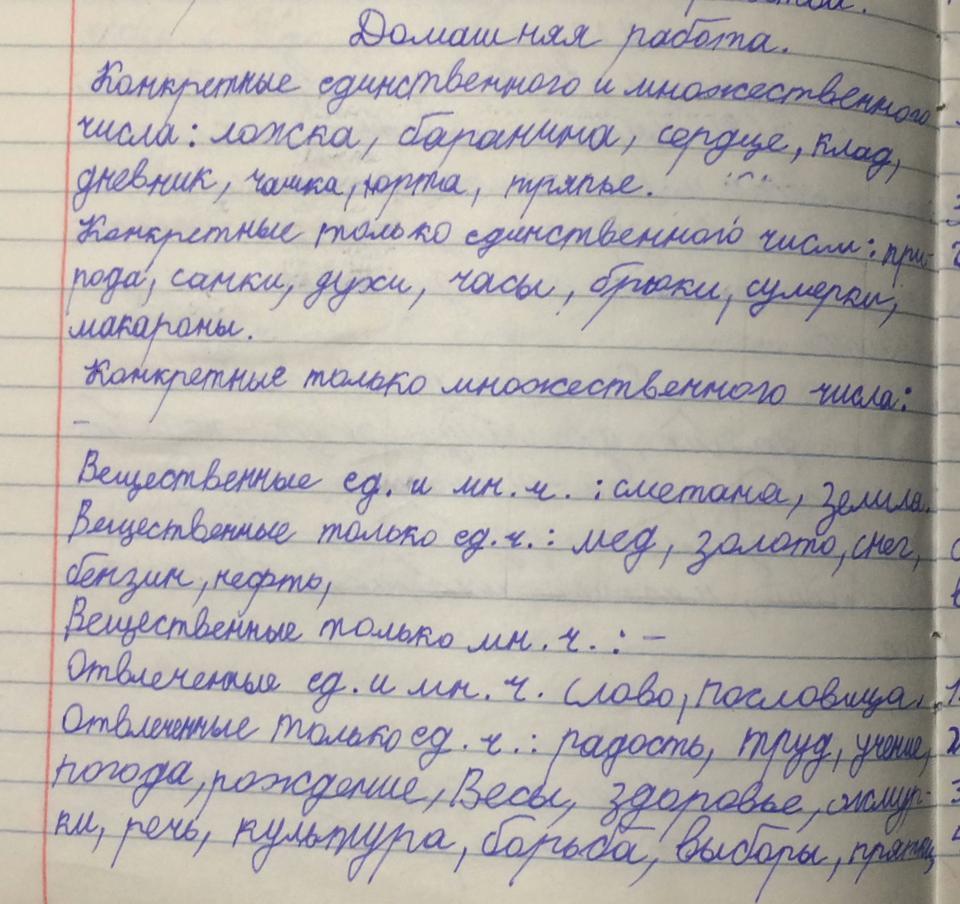 Домашняя работа.
Конкретные единственного и множественного
числа: ложка, баранина, сердце, клад,
дневник, чашка, юрта, тряпье.
Конкретные только единственного числа: при-
рода, санки, духи, часы, брюки, сумерки,
макароны.
Конкретные только множественного числа:
–
Вещественные ед. и мн. ч. : сметана, земля.
Вещественные только ед. ч. : мед, золото, снег,
бензин, нефть,
Вещественные только мн. ч. : –
Отвлеченные ед. и мн. ч. слово, пословица.
Отвлеченные только ед. ч. : радость, труд, учение,
погода, рождение, Весы, здоровье, жмур-
ки, речь, культура, борьба, выборы, прятки,